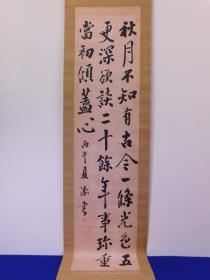 秋月不知有古今一條光色五
更深欲談二十餘年事珍重
當初傾蓋心
丙午夏